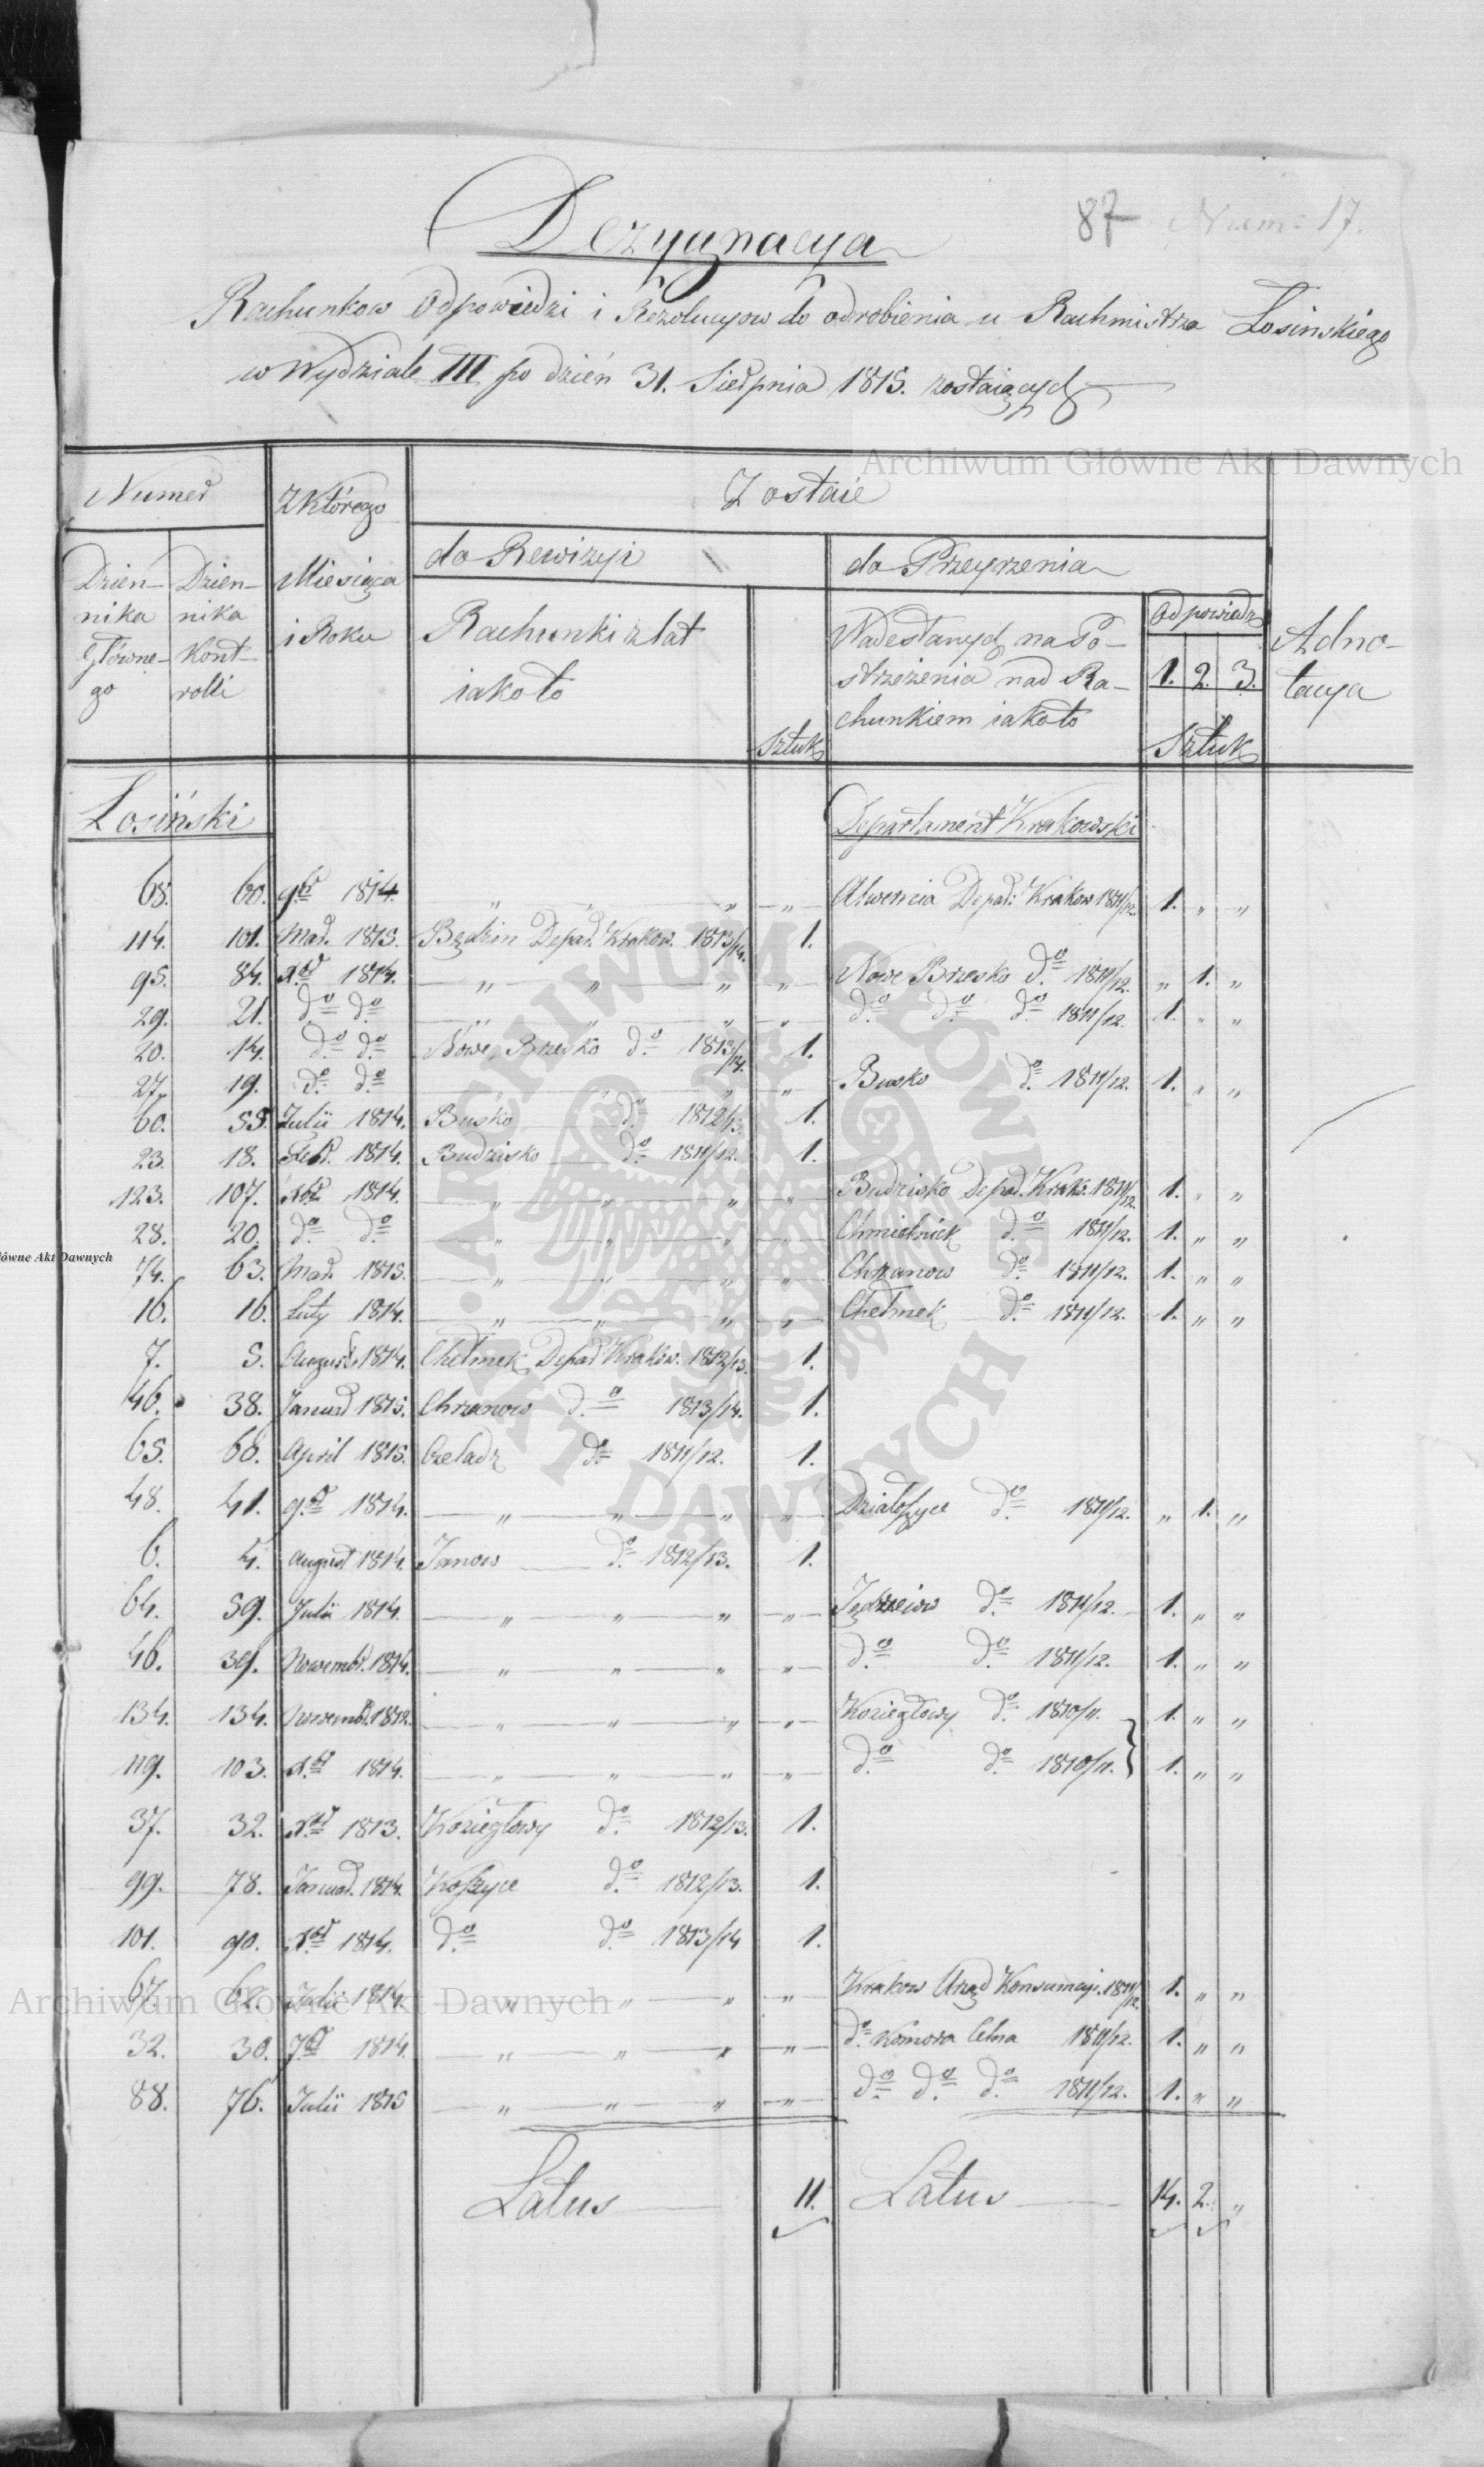 87 Num: 17.
Dezygnacya
Rachunkow Odpowiedzi i Rezolucyow do odrobienia u Rachmistrza Łosinskiego
w Wydziale III po dzień 31. Sierpnia 1815. zostaiących
Archiwum Główne Akt Dawnych
Numer
Z Którego
Miesiąca
i Roku
Zostaie
Dzien-
nika
Główne-
go
Dzien-
nika
Kont-
rolli
do Rewizyi
do Przeyrzenia
Rachunki z lat
iako to
Sztuk
Nadesłanych na Po-
strzeżenia nad Ra-
chunkiem iako to
Odpowiedz
1. 2. 3.
Sztuk
Adno-
tacya
Łosiński Departament Krakowski
68. 60. 9br 1814. " " " " Alwernia Depar: Krakow 1811/12. 1. " "
114. 101. Mar. 1815. Będzin Depar. Krakow. 1813/14. 1.
95. 84. Xbr 1814. " " " " Nowe Brzesko do 1811/12. " 1. "
29. 21. do do " " " " do do do 1811/12. 1. " "
20. 14. do do Nowe Brzesko do 1813/14. 1.
27. 19. do do " " " " Busko do 1811/12. 1. " "
60. 55. Julii 1814. Busko do 1812/13. 1.
23. 18. Febr. 1814. Budzisko do 1811/12. 1.
123. 107. Xbr 1814. " " " " Budzisko Depar. Krak. 1811/12. 1. " "
28. 20. do do " " " " Chmielnick do 1811/12. 1. " "
74. 63. Mar. 1815. " " " " Chrzanow do 1811/12. 1. " "
16. 16. Luty 1814. " " " " Chełmek do 1811/12. 1. " "
7. 5. August 1814. Chełmek Depar Krakow. 1812/13. 1.
46. 38. Januar 1815. Chrzanow do 1813/14. 1.
65. 60. April 1815. Czeladz do 1811/12. 1.
48. 41. 9br 1814. " " " " Działoszyce do 1811/12. " 1. "
6. 4. August 1814. Janow do 1812/13. 1.
64. 59. Julii 1814. " " " " Jędrzeiow do 1811/12. 1. " "
46. 39. Novembr. 1814. " " " " do do 1811/12. 1. " "
134. 134. Novembr. 1812. " " " " Koziegłowy do 1810/11. 1. " "
119. 103. Xbr 1814. " " " " do do 1810/11. } 1. " "
37. 32. Xbr 1813. Koziegłowy do 1812/13. 1.
99. 78. Januar. 1814. Koszyce do 1812/13. 1.
101. 90. Xbr 1814. do do 1813/14 1.
67. 62. Julii 1814. " " " " Krakow Urząd Konsumcyi. 1811/12 1. " "
Archiwum Główne Akt Dawnych
32. 30. 7br 1814. " " " " do Komora Celna 1811/12. 1. " "
88. 76. Julii 1815 " " " " do do do 1811/12. 1. " "
Latus 11. Latus 14. 2. "
ARCHIWUM GŁÓWNE AKT DAWNYCH